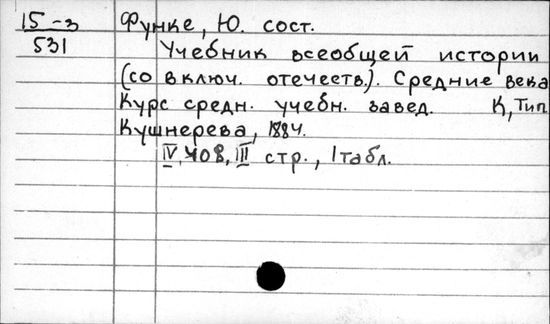 15-3 Функе, Ю. сост.
531 Учебник всеобщей истории
(со включ. отечеств.). Средние века
Курс средн. учебн. завед. К, Тип
Кушнерева, 1884.
IV, 408, III стр., 1 табл.